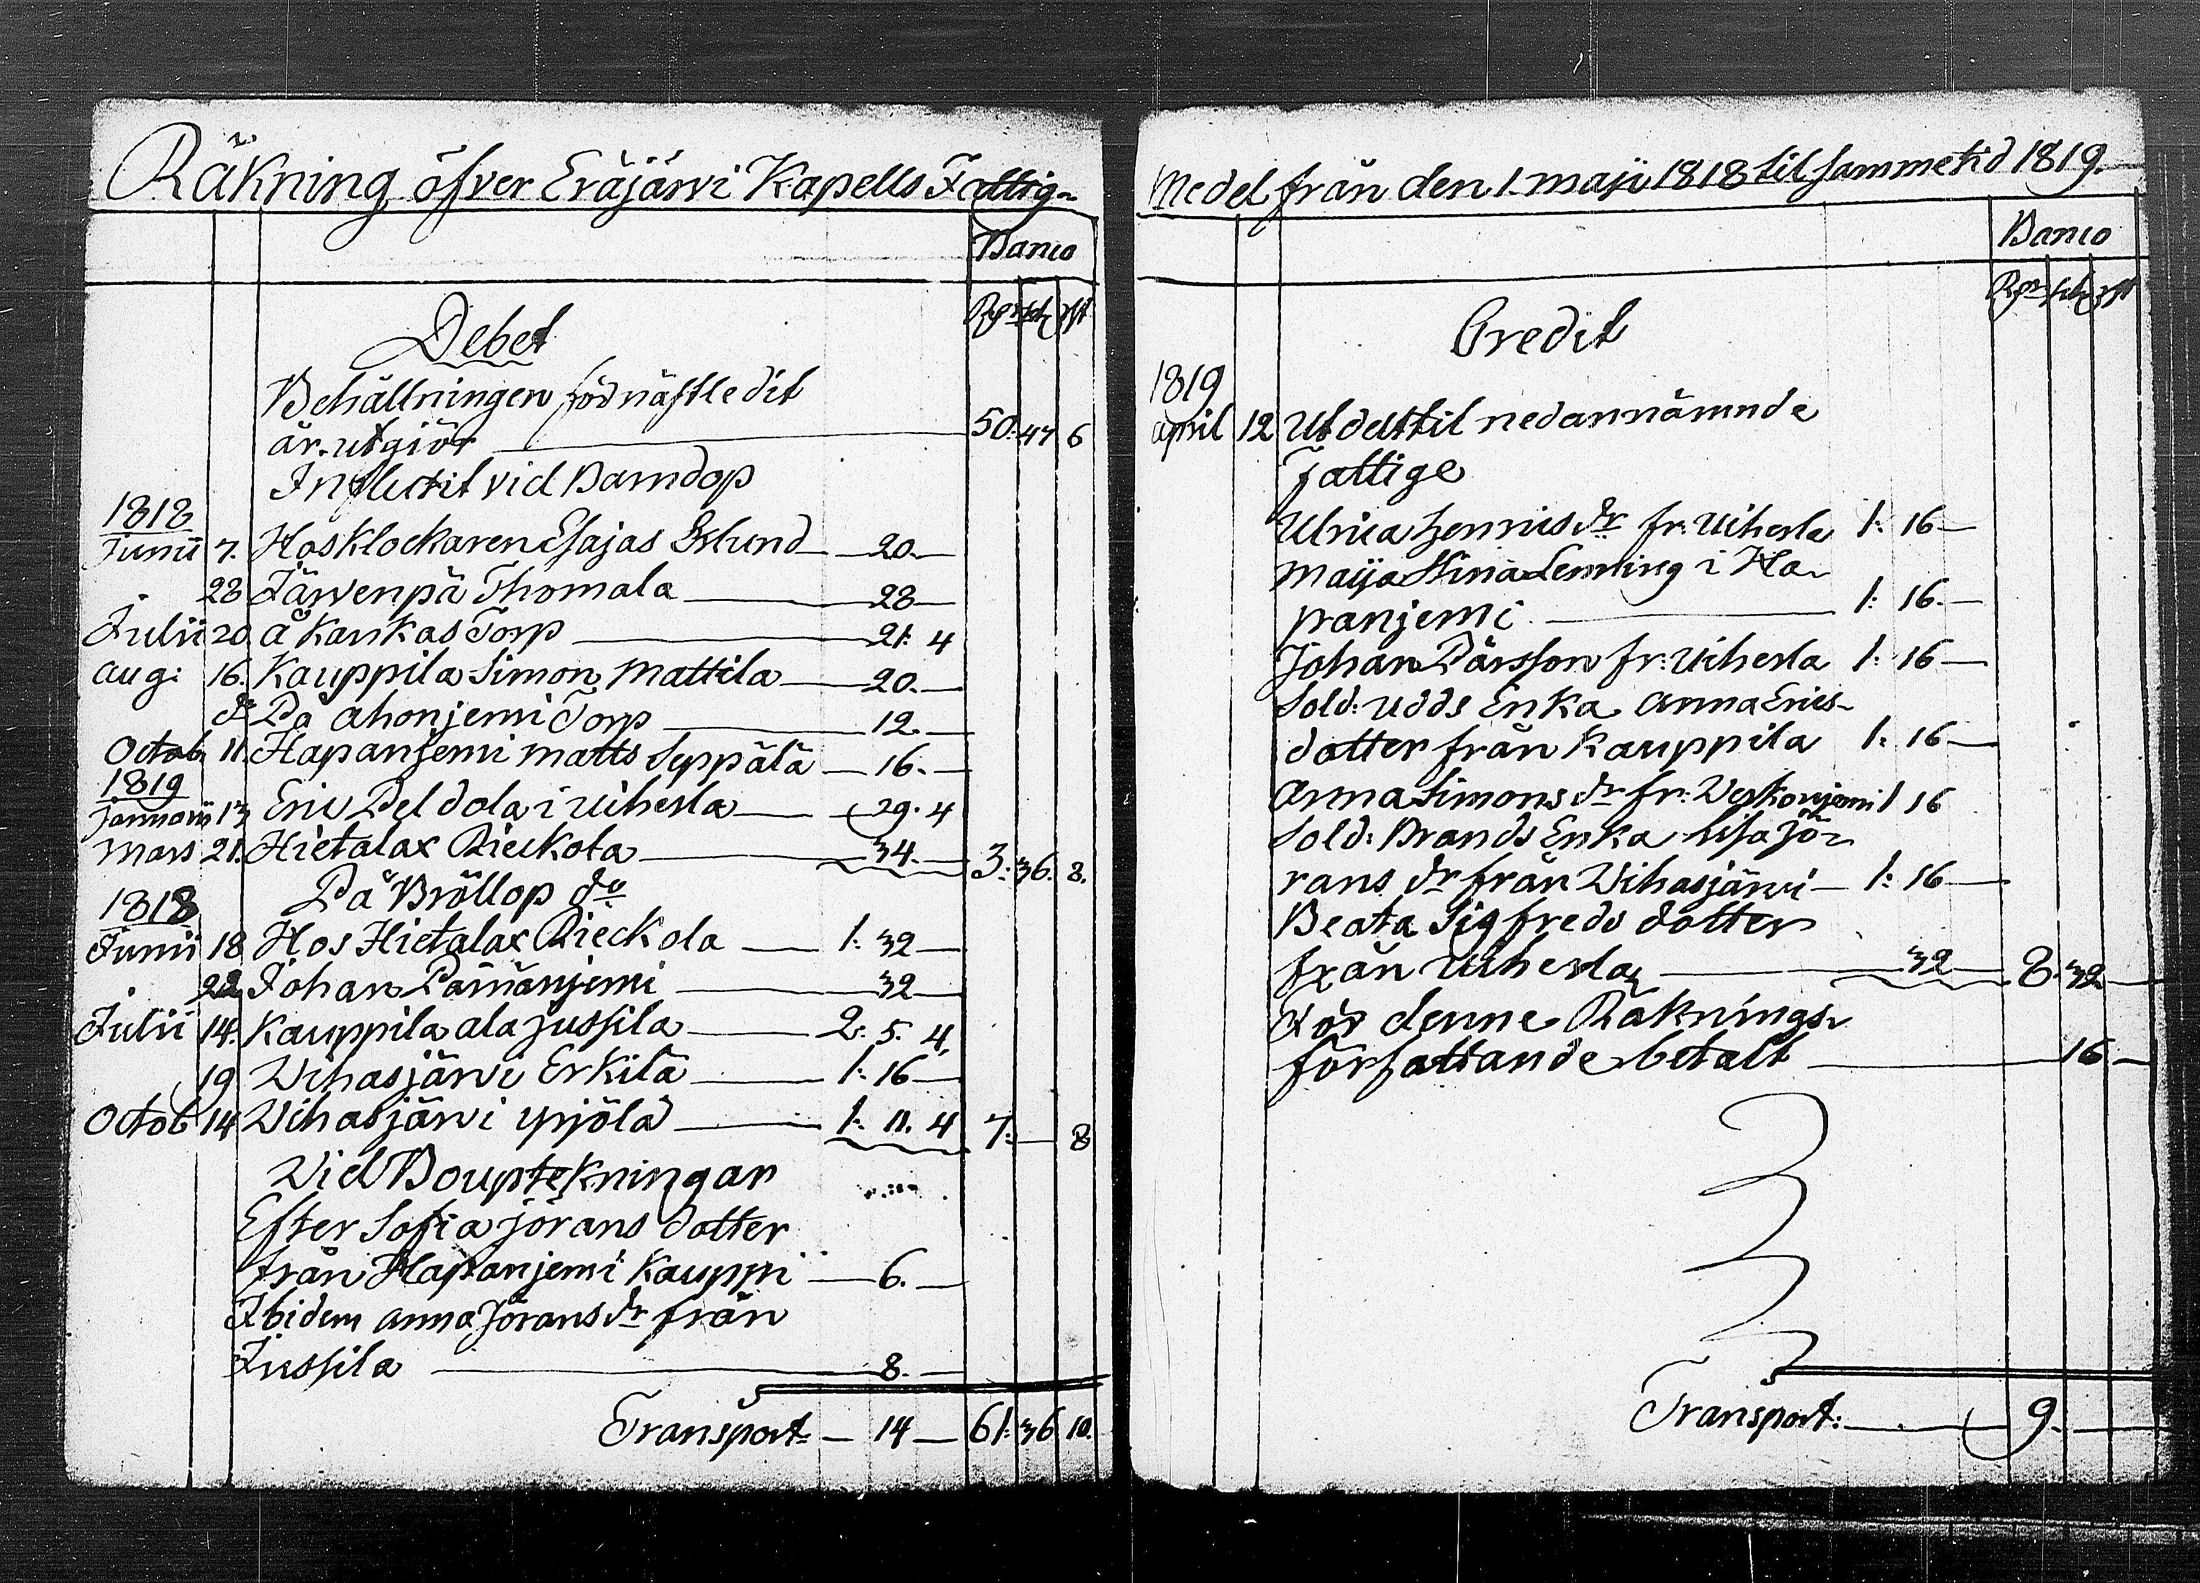 Räkning öfver Eräjärvi Kapells Fattig-
Banco
Rdr sch rst
Debet
Behållningen från nästledit
år utgiör — 50: 47 6
Influtit vid Barndop
1818
Junii 7. Hos Klockaren Esajas Eklund — 20. —
28 Järvenpä Thomala — 28 —
Julii 20 å Kankas Torp — 21: 4
Aug: 16. Kauppila Simon Mattila — 20. —
do På Ahonjemi Torp — 12. —
Octob. 11. Hapanjemi Matts Seppälä — 16. —
1819
Januarii 13 Eric Peldola i Uiherla — 29. 4
Mars 21. Hietalax Rieckola — 34. — 3: 36. 8.
1818 På Bröllop do
Junii 18 Hos Hietalax Rieckola — 1: 32 —
22 Johan — 32 —
Julii 14. Kauppila ala Jussila — 2: 5. 4
19 Vihasjärvi Erkilä — 1: 16 —
Octob 14 Vihasjärvi ypjölä — 1: 11. 4 7: — 8
Vid Bouptekningar
Efter Sofia Jörans dotter
från Hapanjemi Kauppi — 6. —
Ibidem Anna Jörans dr från
Jussila — 8. —
Transport — 14 — 61: 36 10.
Medel från den 1. Maji 1818 til samme tid 1819.
Banco
Rdr sch rst
Credit
1819
April 12 Utdelt til nedannämnde
Fattige
Ulrica Henrics dr fr: Uiherla 1: 16 —
Maija Stina Lemting i Ha-
panjemi — 1: 16. —
Johan Pärsson fr: Uiherla 1: 16 —
Sold: Udds Enka Anna Erics-
dotter från Kauppila 1: 16 —
Anna Simons dr fr: 1 16
Sold: Brands Enka Lisa Jö-
rans dr från Vihasjärvi — 1: 16 —
Beata Sigfreds dotter
från Uiherla — 32 — 8. 32 —
För denne Räknings
författande betalt — 16 —
Transport: — 9. —